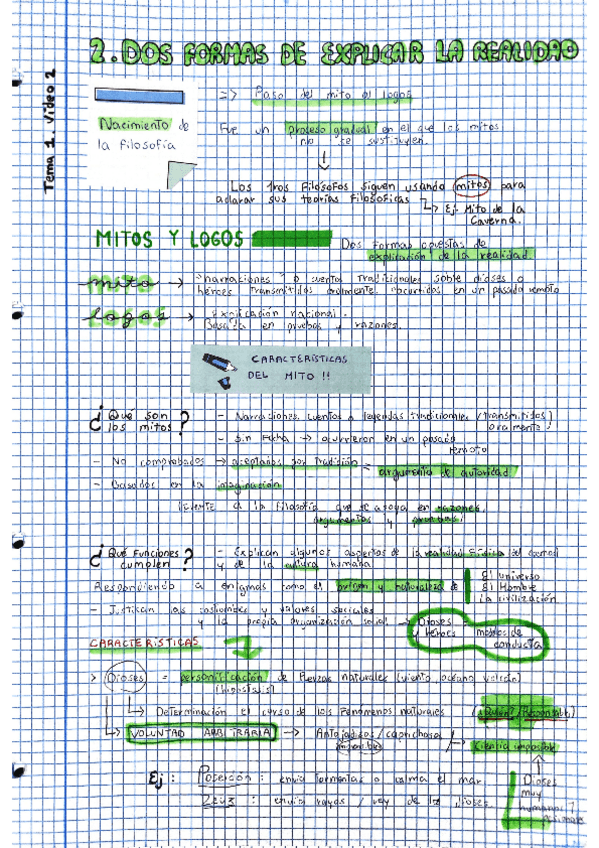 2. DOS FORMAS DE EXPLICAR LA REALIDAD
Tema 1. Video 2
Nacimiento de
la filosofía
=> Paso del mito al logos
Fue un proceso gradual en el que los mitos
no se sustituyen.
Los 1ros Filósofos siguen usando mitos para
aclarar sus teorías filosóficas
Ej: Mito de la
Caverna.
MITOS Y LOGOS
Dos formas opuestas de
explicación de la realidad.
mito → "narraciones" o cuentos tradicionales sobre dioses o
héroes transmitidos oralmente ocurridos en un pasado remoto
logos → Explicación racional.
Basada en pruebas y razones.
CARACTERÍSTICAS
DEL MITO !!
¿Qué son
los mitos?
- Narraciones, cuentos o leyendas tradicionales (transmitidos)
oralmente
- Sin fecha → ocurrieron en un pasado
remoto
No comprobados → aceptados por tradición = argumento de autoridad
- Basados en la imaginación
de la filosofía que se apoya en razones,
argumentos y pruebas!
¿Qué funciones
cumplen?
- Explican algunos aspectos de la realidad física del
y de la cultura humana.
Respondiendo a enigmas como el origen y naturaleza de
El universo
El Hombre
La civilización
- Justifican las costumbres y valores sociales
y la propia organización social →
Dioses
y héroes
modelos de
conducta
CARACTERÍSTICAS
> Dioses = personificación de fuerzas naturales (viento, océano, volcán)
↳ Determinación el curso de los fenómenos naturales (¿Quién? / Responsable)
↳ VOLUNTAD ARBITRARIA → Antojadizos / caprichosos
Ciencia imposible
Ej: Poseidón: envía tormentas o calma el mar
Zeus: envía rayos / rey de los dioses.
Dioses
muy
humanos